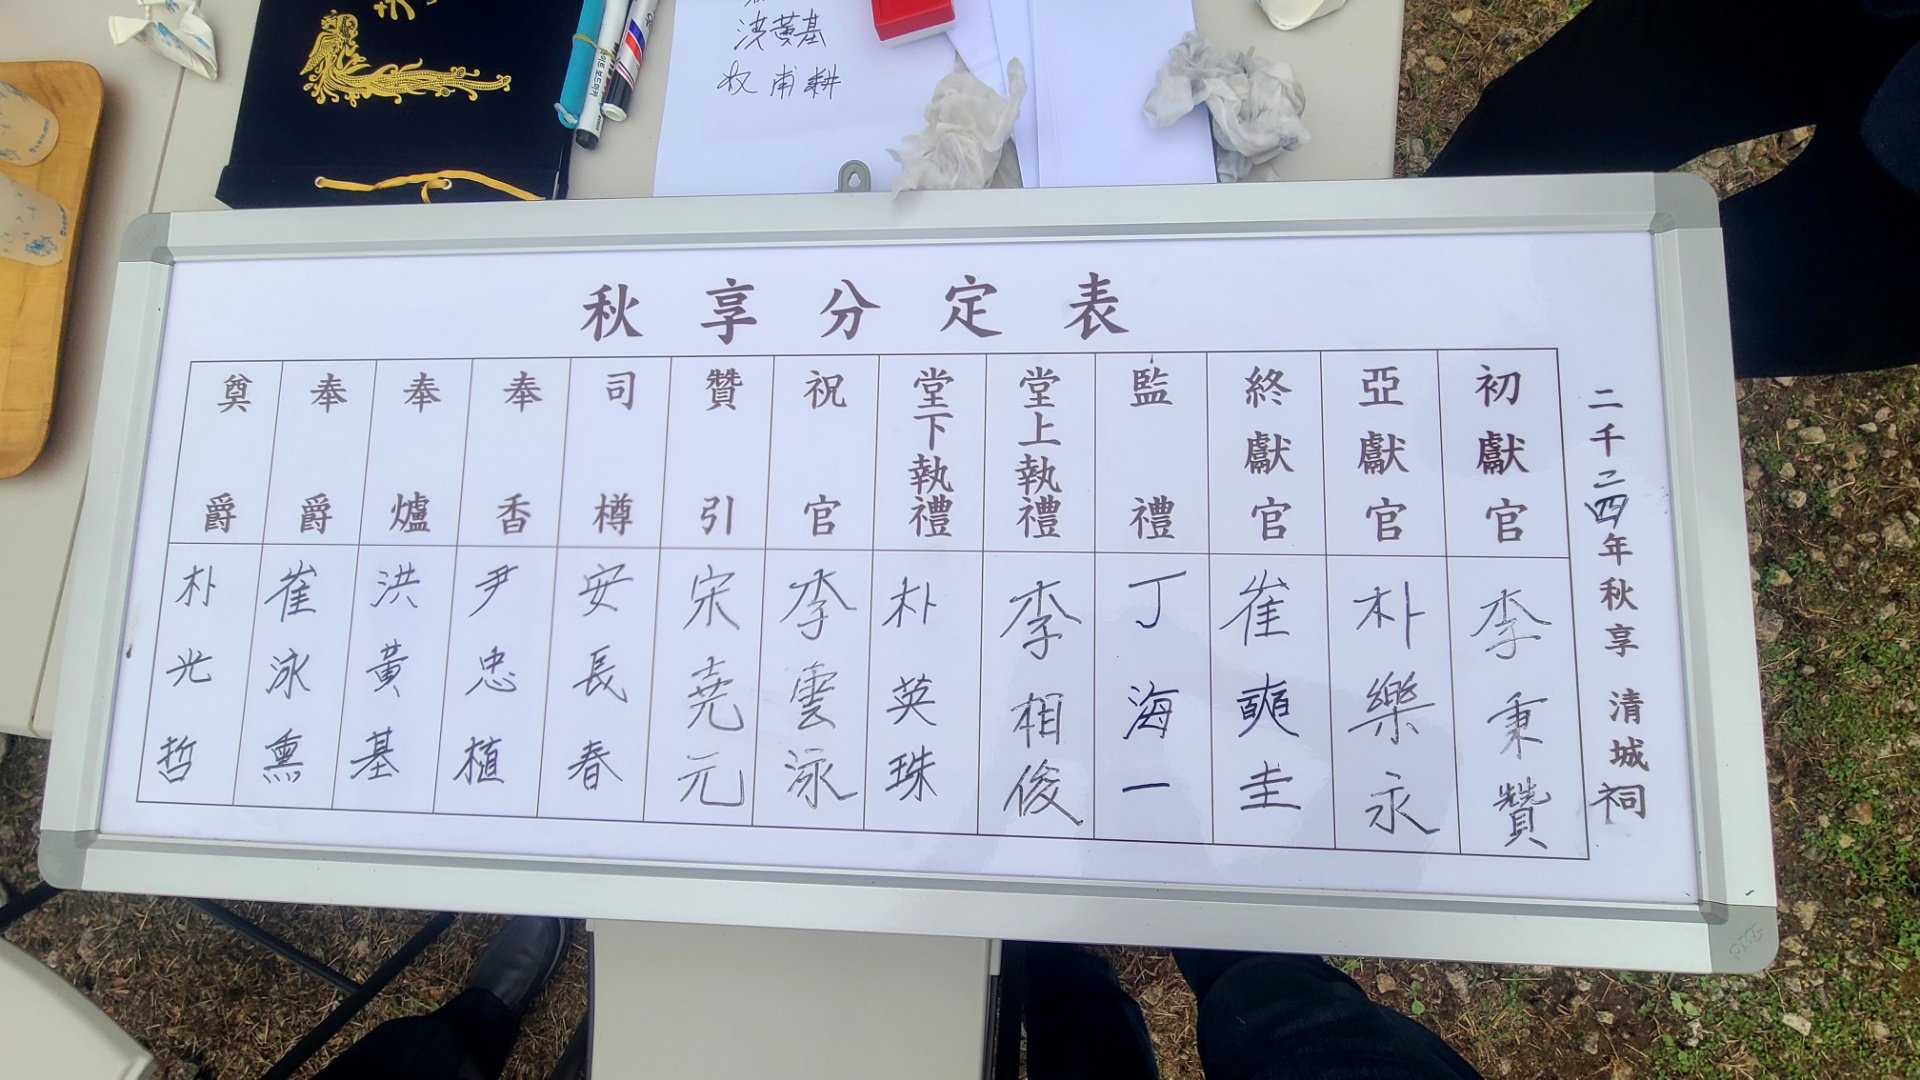 洪黃基
權甫耕
秋享分定表
二千二四年秋享 清城祠
初獻官 李秉贊
亞獻官 朴樂永
終獻官 崔奭圭
監禮 丁海一
堂上執禮 李相俊
堂下執禮 朴英珠
祝官 李雲泳
贊引 宋堯元
司樽 安長春
奉香 尹忠植
奉爐 洪黃基
奉爵 崔泳熏
奠爵 朴光哲